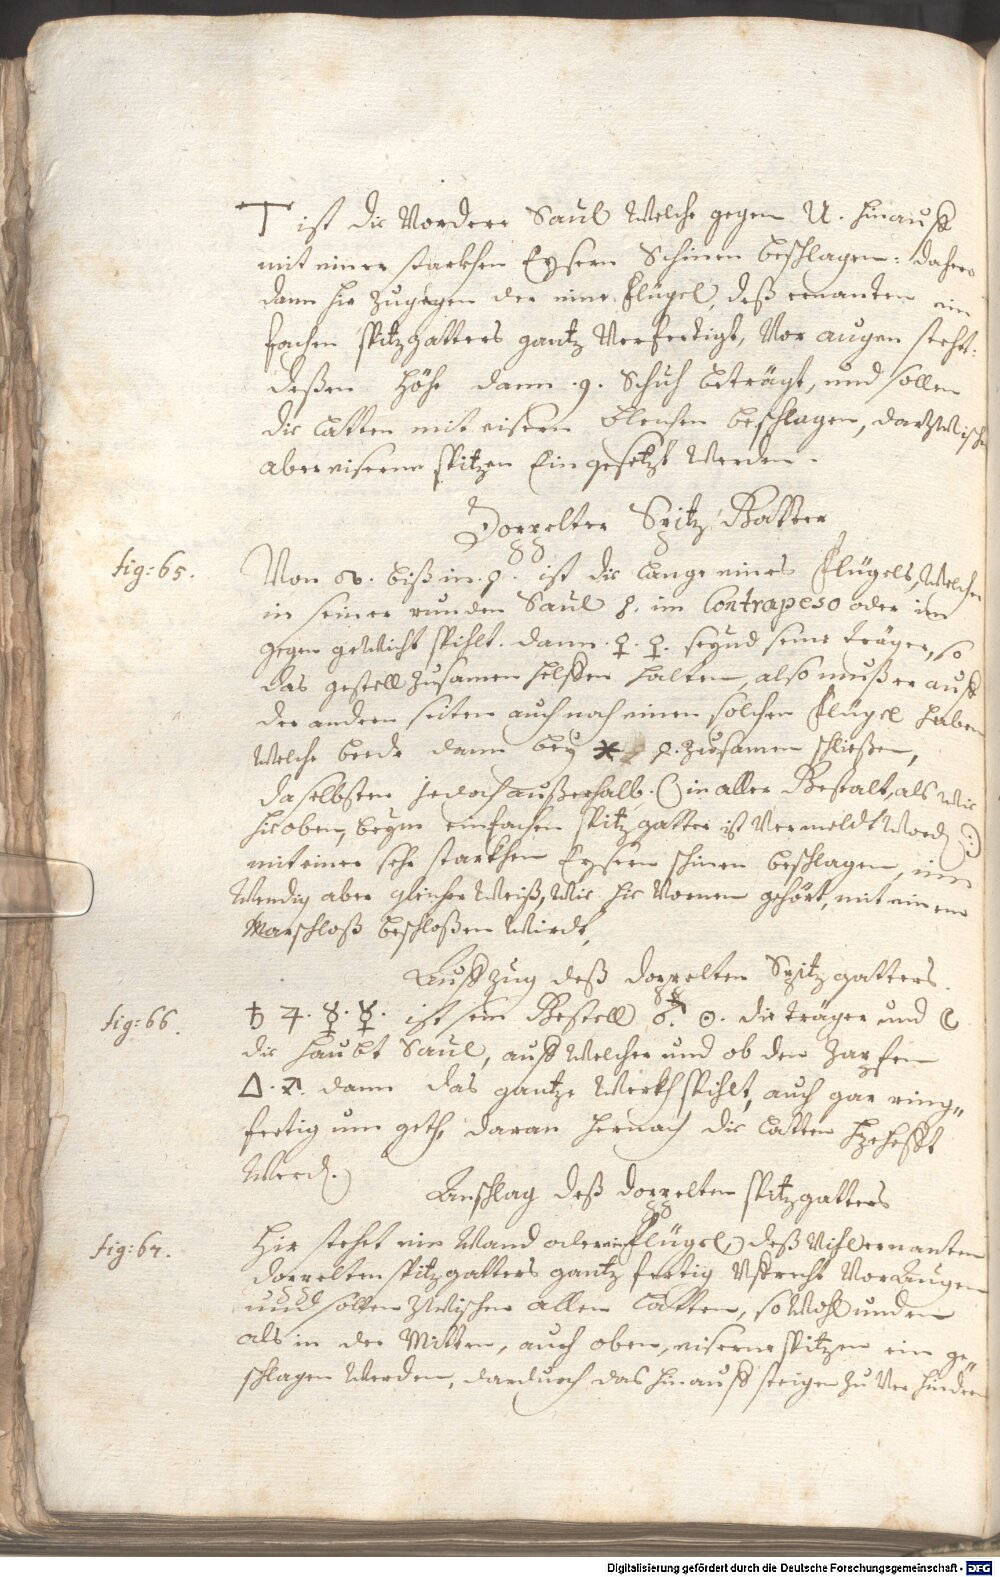 T ist die Vordere Saul Welche gegen U. hinauß
mit einer starkhen Eysern Schinen beschlagen: dahero
dann hie zugegen der eine flügel, deß ernanten ein
fachen spitzgatters gantz Verfertigt, Vor augen steht.
deßen höhe dann .9. Schuh beträgt, und sollen
die Latten mit eisern blechen beschlagen, darzwischen
aber eiserne spitzen Eingesetzt Werden.
Doppelter Spitz Gatter
fig: 65.
Von biß in ist die Lange eines flügels, Welcher
in seiner runden Saul im Contrapeso oder im
gegen gewicht spihlt. dann ♀. ♀. seynd seine träger, so
das gestell zusamen helffen halten, also muß er auff
der andern seiten auch noch einen solchen flügel haben
Welche beede dann bey * zusamen schließen,
daselbsten jedoch außerhalb. (in aller Gestalt, als wie
hieoben, beym einfachen spitzgatter ist Vermeldt Word:)
mit einer sehr starkhen Eysern schinen beschlagen, inn
Wendig aber gleicher Weiß, Wie hie Vornen gehört, mit einem
Marschloß beschloßen Wirdt,
Auffzug deß doppelten Spitzgatters.
fig: 66.
♄ ♃. ☿. ☿. ist sein Gestell ♂. ☉. die träger und
die haubt Saul, auff Welcher und ob den Zapfen
Δ. dann das gantze Werkh spihlt, auch gar ring„
fertig um geth, daran hernach die Latten gehefft
Werd.
Anschlag deß doppelten spitzgatters
fig: 67.
Hie steht ein Wand oder ein flügel deß Vihlernanten
doppelten spitzgatters gantz fertig Uffrecht Vor Augen
und sollen zwischen allen Latten, so Wohl unden
als in der Mitten, auch oben, eiserne spitzen ein ge„
schlagen Werden, dardurch das hinauff steigen zu Verhindern
Digitalisierung gefördert durch die Deutsche Forschungsgemeinschaft - DFG